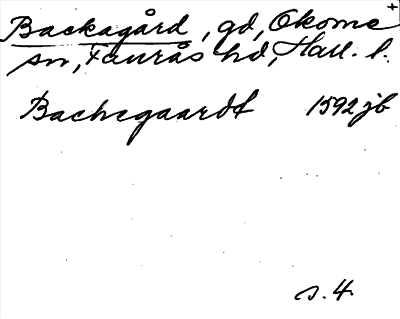 Backagård, gd, Okome +
sn, Faurås hd, Hall. l.
Bachegaardt 1592 jb
s. 4.